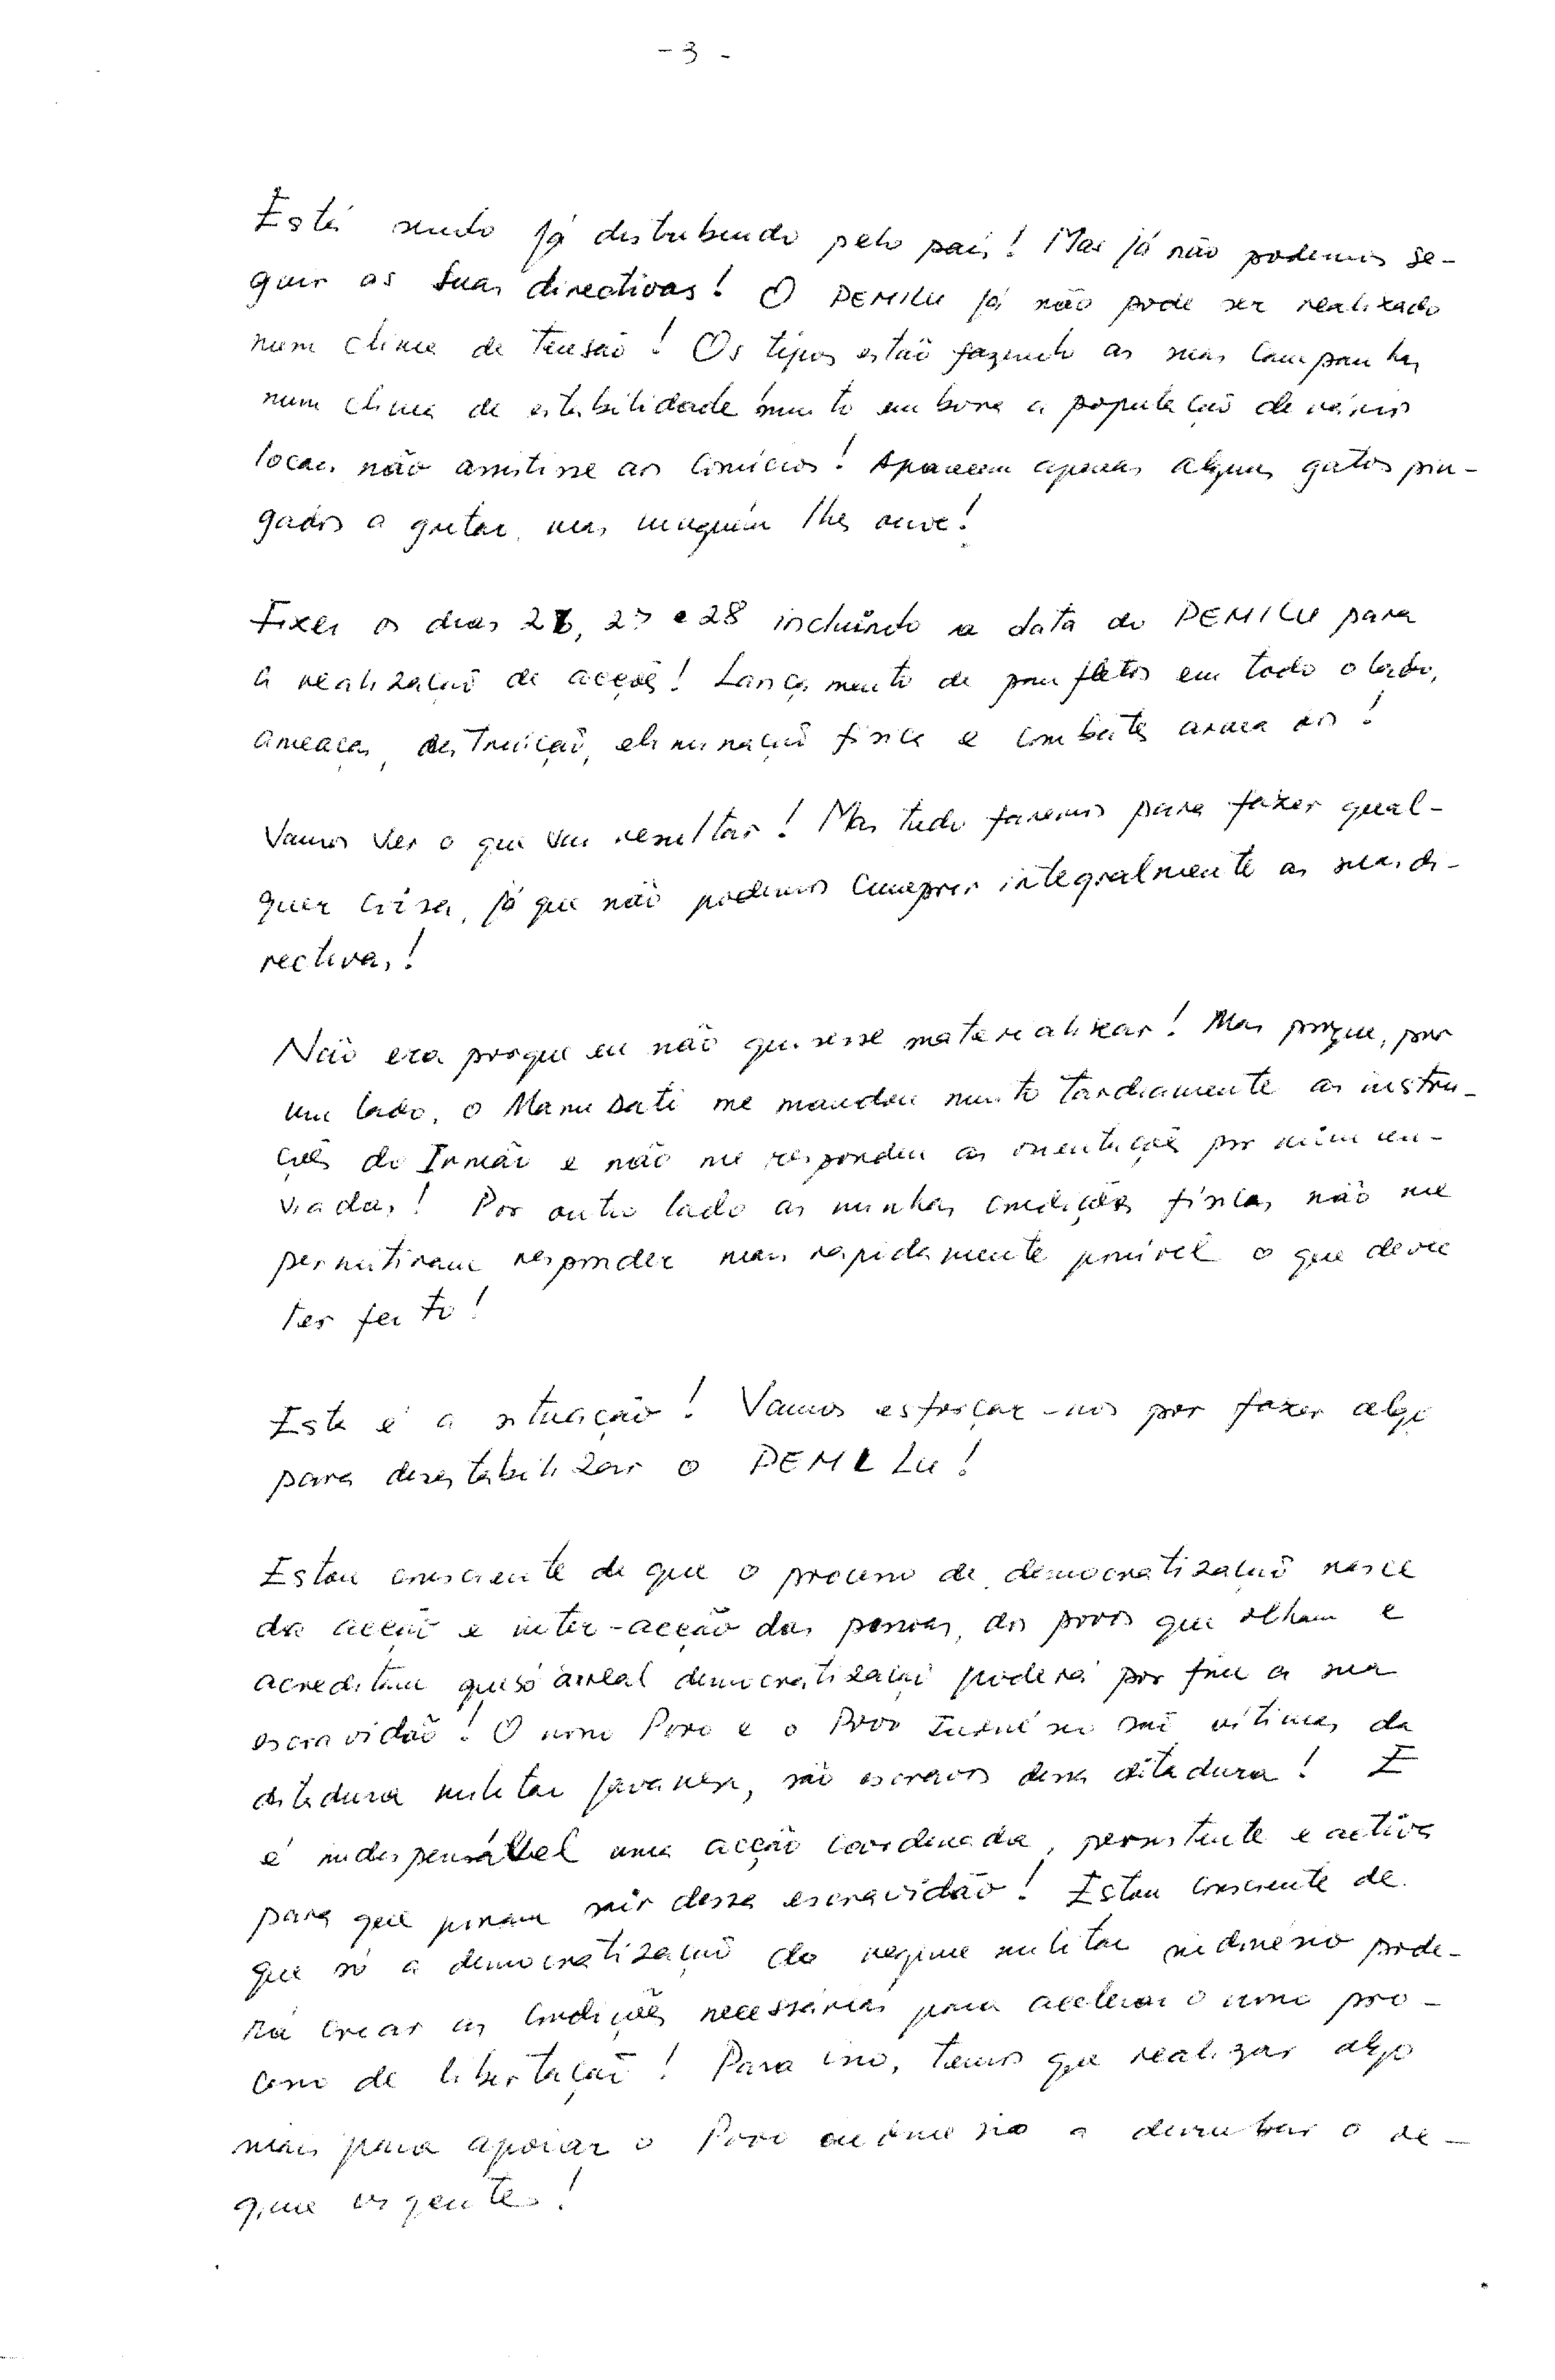 - 3 -
Está sendo já distribuindo pelo país! Mas já não podemos se-
guir as suas directivas! O PEMILU já não pode ser realizado
num clima de tensão! Os tipos estão fazendo as suas campanhas
num clima de estabilidade muito embora a população de vários
locais não assistisse aos comícios! Aparecem apenas alguns gatos pin-
gados a gritar, mas ninguém lhes ouve!
Fixei os dias 26, 27 e 28 incluindo a data do PEMILU para
a realização de acções! Lançamento de panfletos em todo o lado,
ameaças, destruição, eliminação física e combates armados!
Vamos ver o que vai resultar! Mas tudo faremos para fazer qual-
quer coisa, já que não podemos cumprir integralmente as suas di-
rectivas!
Não era porque eu não quisesse materializar! Mas porque, por
um lado, o Manu Sati me mandou muito tardiamente as instru-
ções do Irmão e não me respondeu as orientações por mim en-
viadas! Por outro lado as minhas condições físicas não me
permitiram responder mais rapidamente possível o que devia
ter feito!
Esta é a situação! Vamos esforçar-nos por fazer algo
para desestabilizar o PEMILU!
Estou consciente de que o processo de democratização nasce
da acção e inter-acção das pessoas, dos povos que olham e
acreditam que só a real democratização poderá por fim a sua
escravidão! O nosso Povo e o Povo Indonésio são vítimas da
ditadura militar javanesa, são escravos dessa ditadura! E
é indispensável uma acção coordenada, persistente e activa
para que possam sair dessa escravidão! Estou consciente de
que só a democratização do regime militar indonésio pode-
rá criar as condições necessárias para acelerar o nosso pro-
cesso de libertação! Para isso, temos que realizar algo
mais para apoiar o Povo indonésio a derrubar o re-
gime vigente!